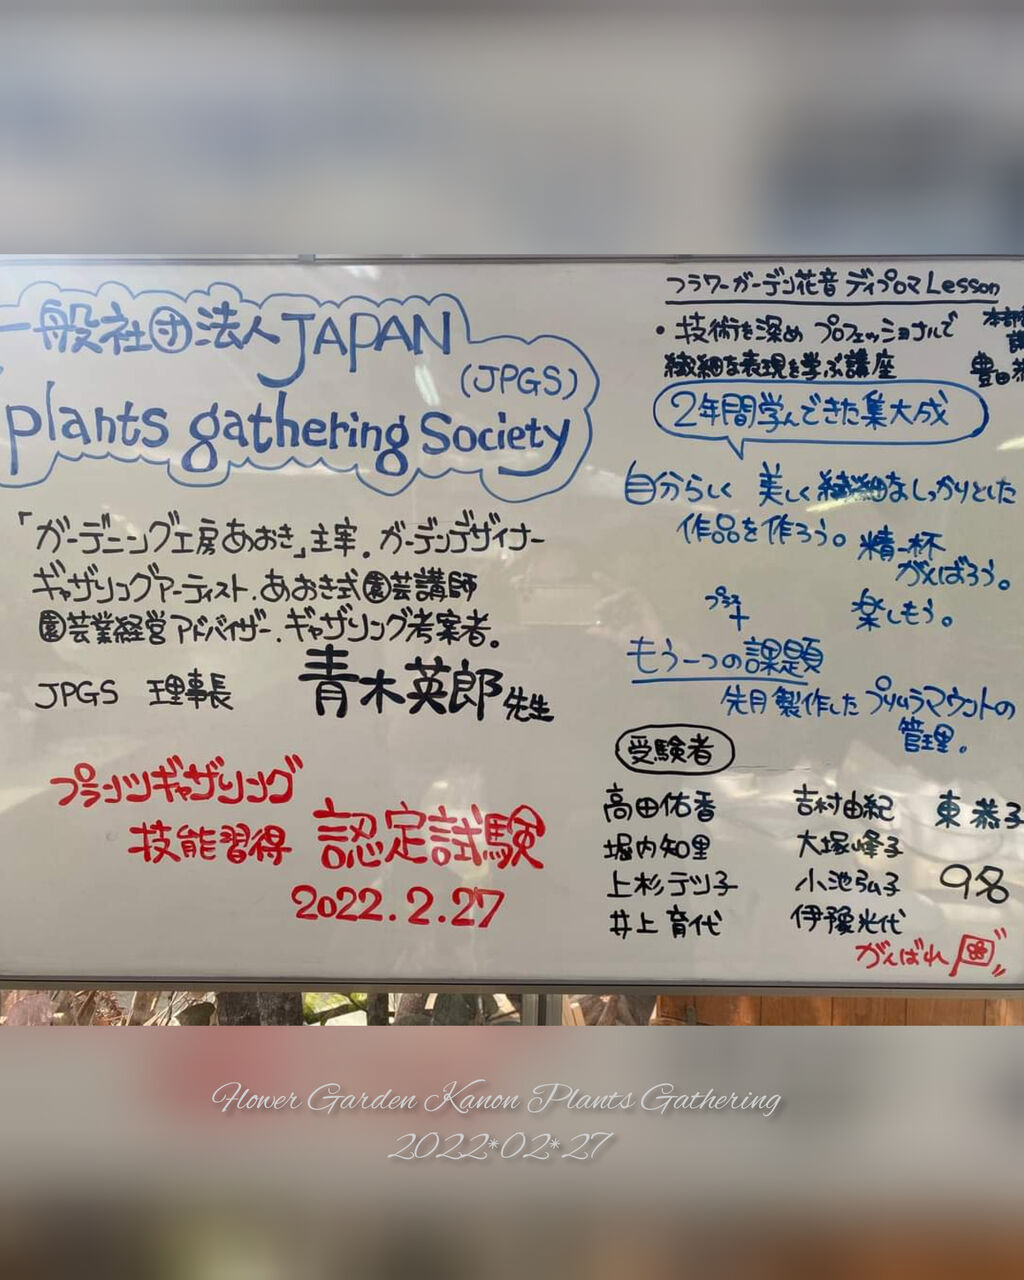 一般社団法人JAPAN
(JPGS)
plants gathering Society
「ガーデニング工房あおき」主宰.ガーデンデザイナー
ギャザリングアーティスト.あおき式園芸講師
園芸業経営アドバイザー.ギャザリング考案者。
JPGS 理事長 青木英郎先生
プランツギャザリング
技能習得 認定試験
2022.2.27
フラワーガーデン花音ディプロマLesson
・技術を深め プロフェッショナルで
繊細な表現を学ぶ講座
本部
豊田
2年間学んできた集大成
自分らしく 美しく繊細なしっかりとした
作品を作ろう。精一杯
がんばろう。
プラス
+
楽しもう。
もう一つの課題
先月製作したプリムラマウントの
管理。
受験者
高田佑香 吉村由紀 東恭子
堀内知里 大塚峰子
上杉テツ子 小池弘子 9名
井上育代 伊豫光代
がんばれ
Flower Garden Kanon Plants Gathering
2022*02*27